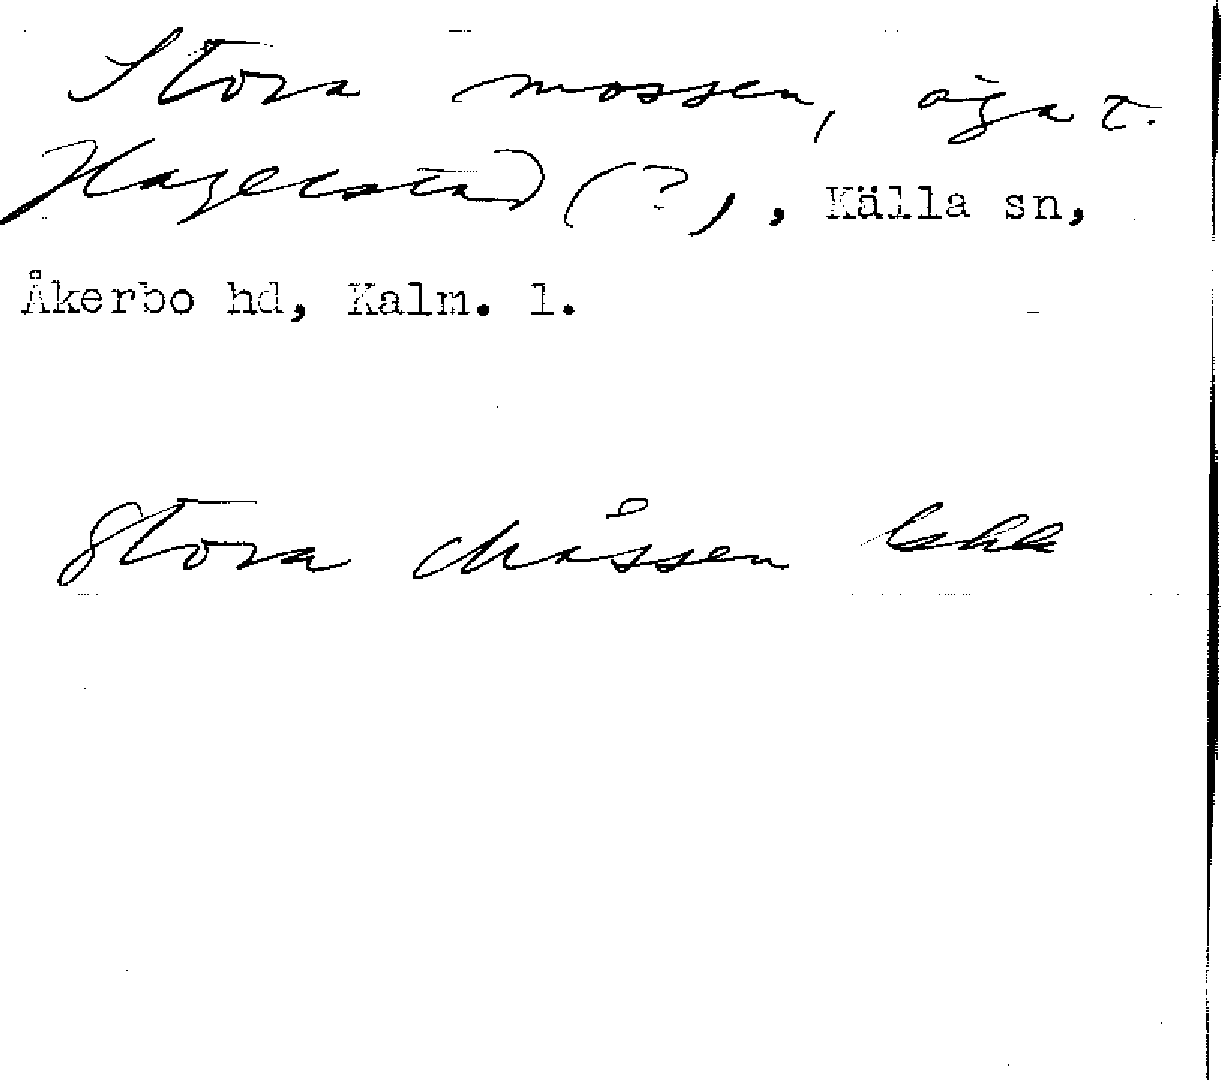 Stora mossen, äga t.
Hagelstad (?), , Källa sn,
Åkerbo hd, Kalm. l.
Stora Måssen